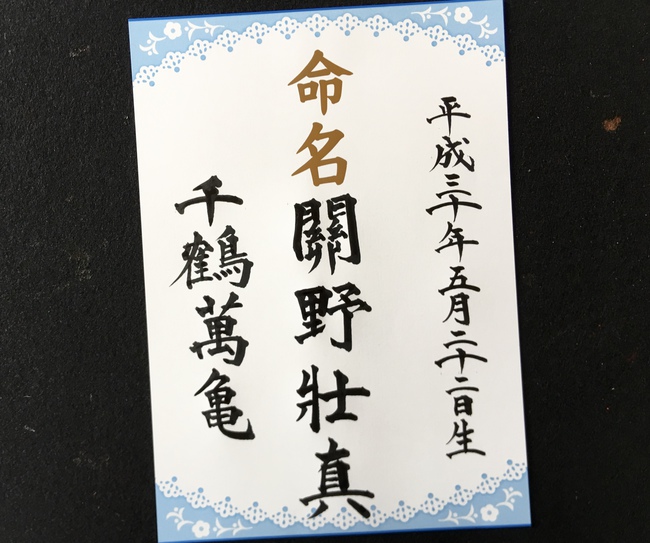 平成三十年五月二十二日生
命名 關野壯真
千鶴萬亀